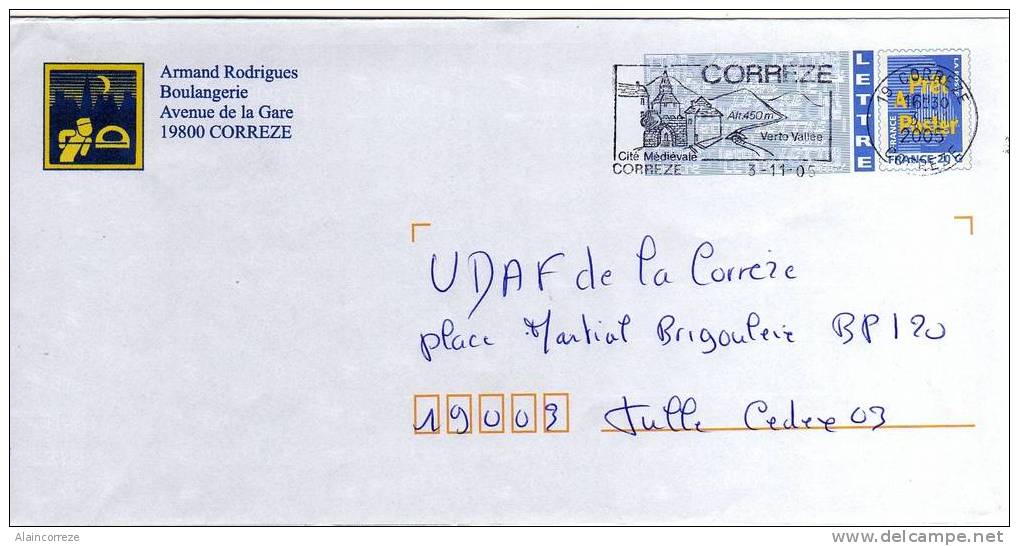 Armand Rodrigues
Boulangerie
Avenue de la Gare
19800 CORREZE
CORREZE
Alt.450 m
Verte Vallée
Cité Médiévale
CORREZE
3-11-05
LETTRE
Prêt
A
Poster
FRANCE
FRANCE 20 G
19 CORREZE
16H30
2005
CORREZE
UDAF de la Correze
place Martial Brigouleix BP120
19003 Tulle Cedex 03
Alaincorreze
www.delcampe.net